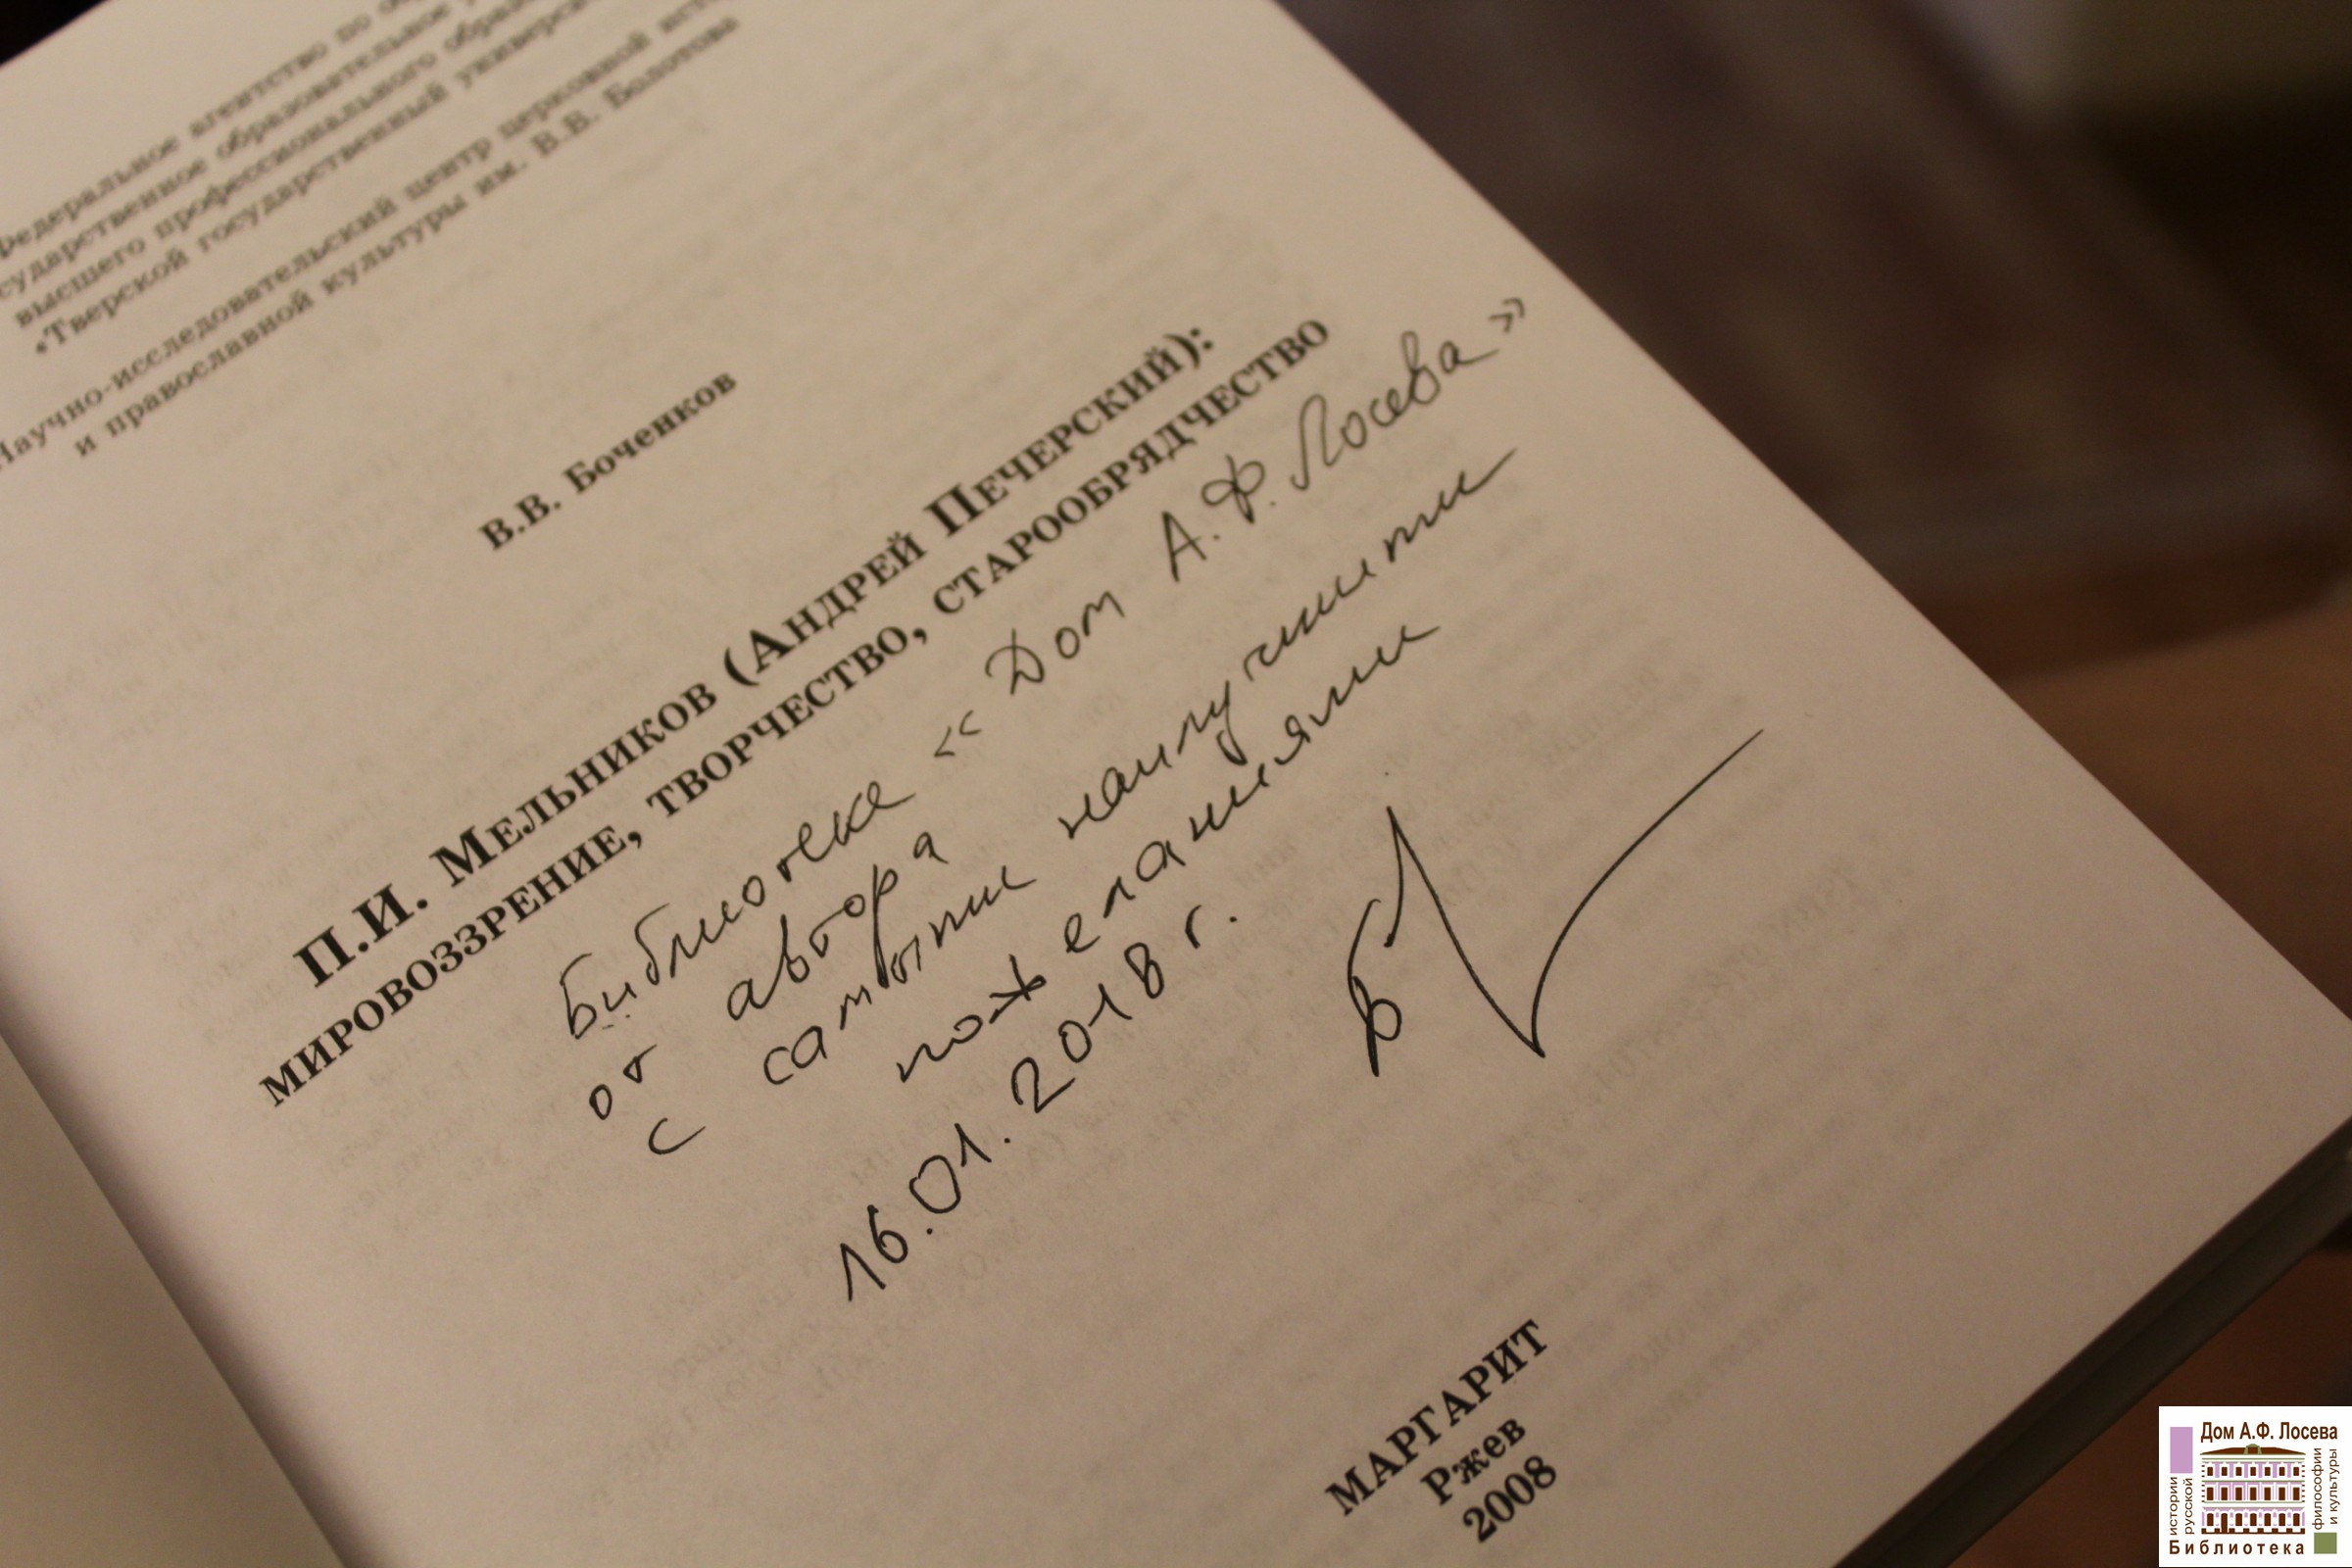 Федеральное агентство по
государственное образовательное
высшего профессионального
«Тверской государственный
Научно-исследовательский центр церковной
и православной культуры им. В.В. Болотова
В.В. Боченков
П.И. Мельников (Андрей Печерский):
мировоззрение, творчество, старообрядчество
Библиотеке «Дом А.Ф. Лосева»
от автора
с самыми наилучшими
пожеланиями
16.01.2018 г.
МАРГАРИТ
Ржев
2008
Дом А.Ф. Лосева
истории
русской
философии
и культуры
Библиотека